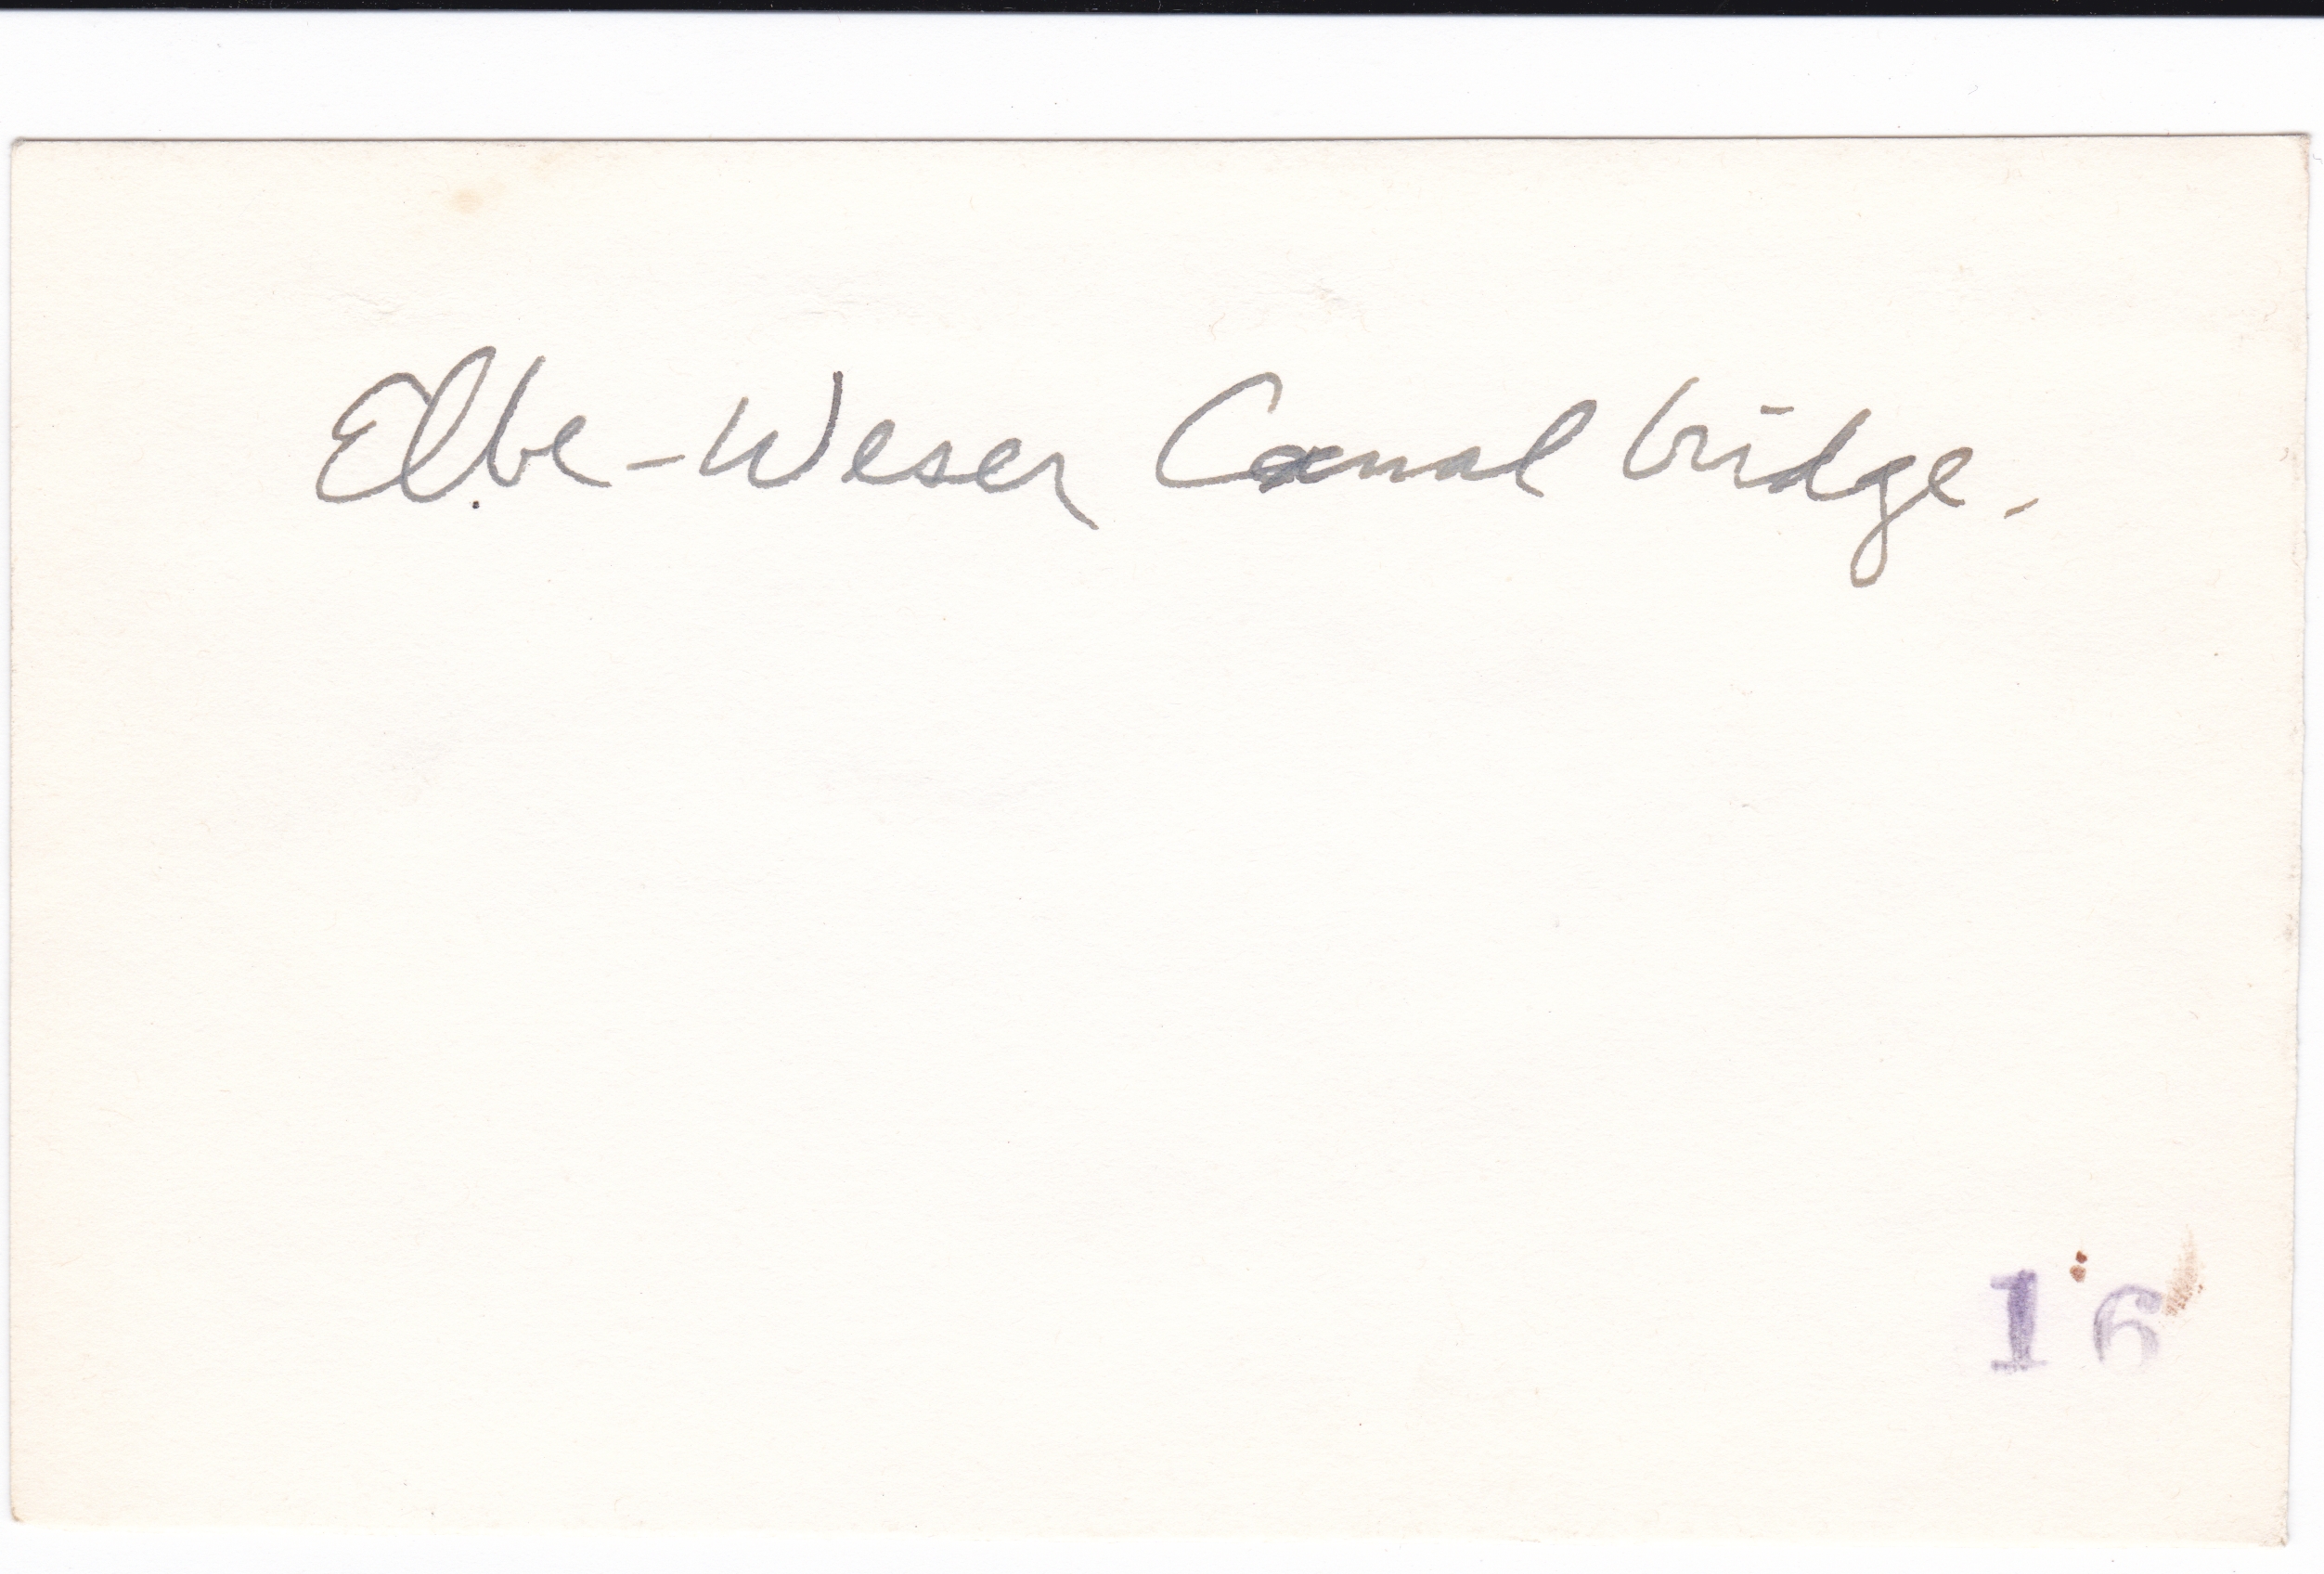 Elbe-Weser Canal bridge.
16